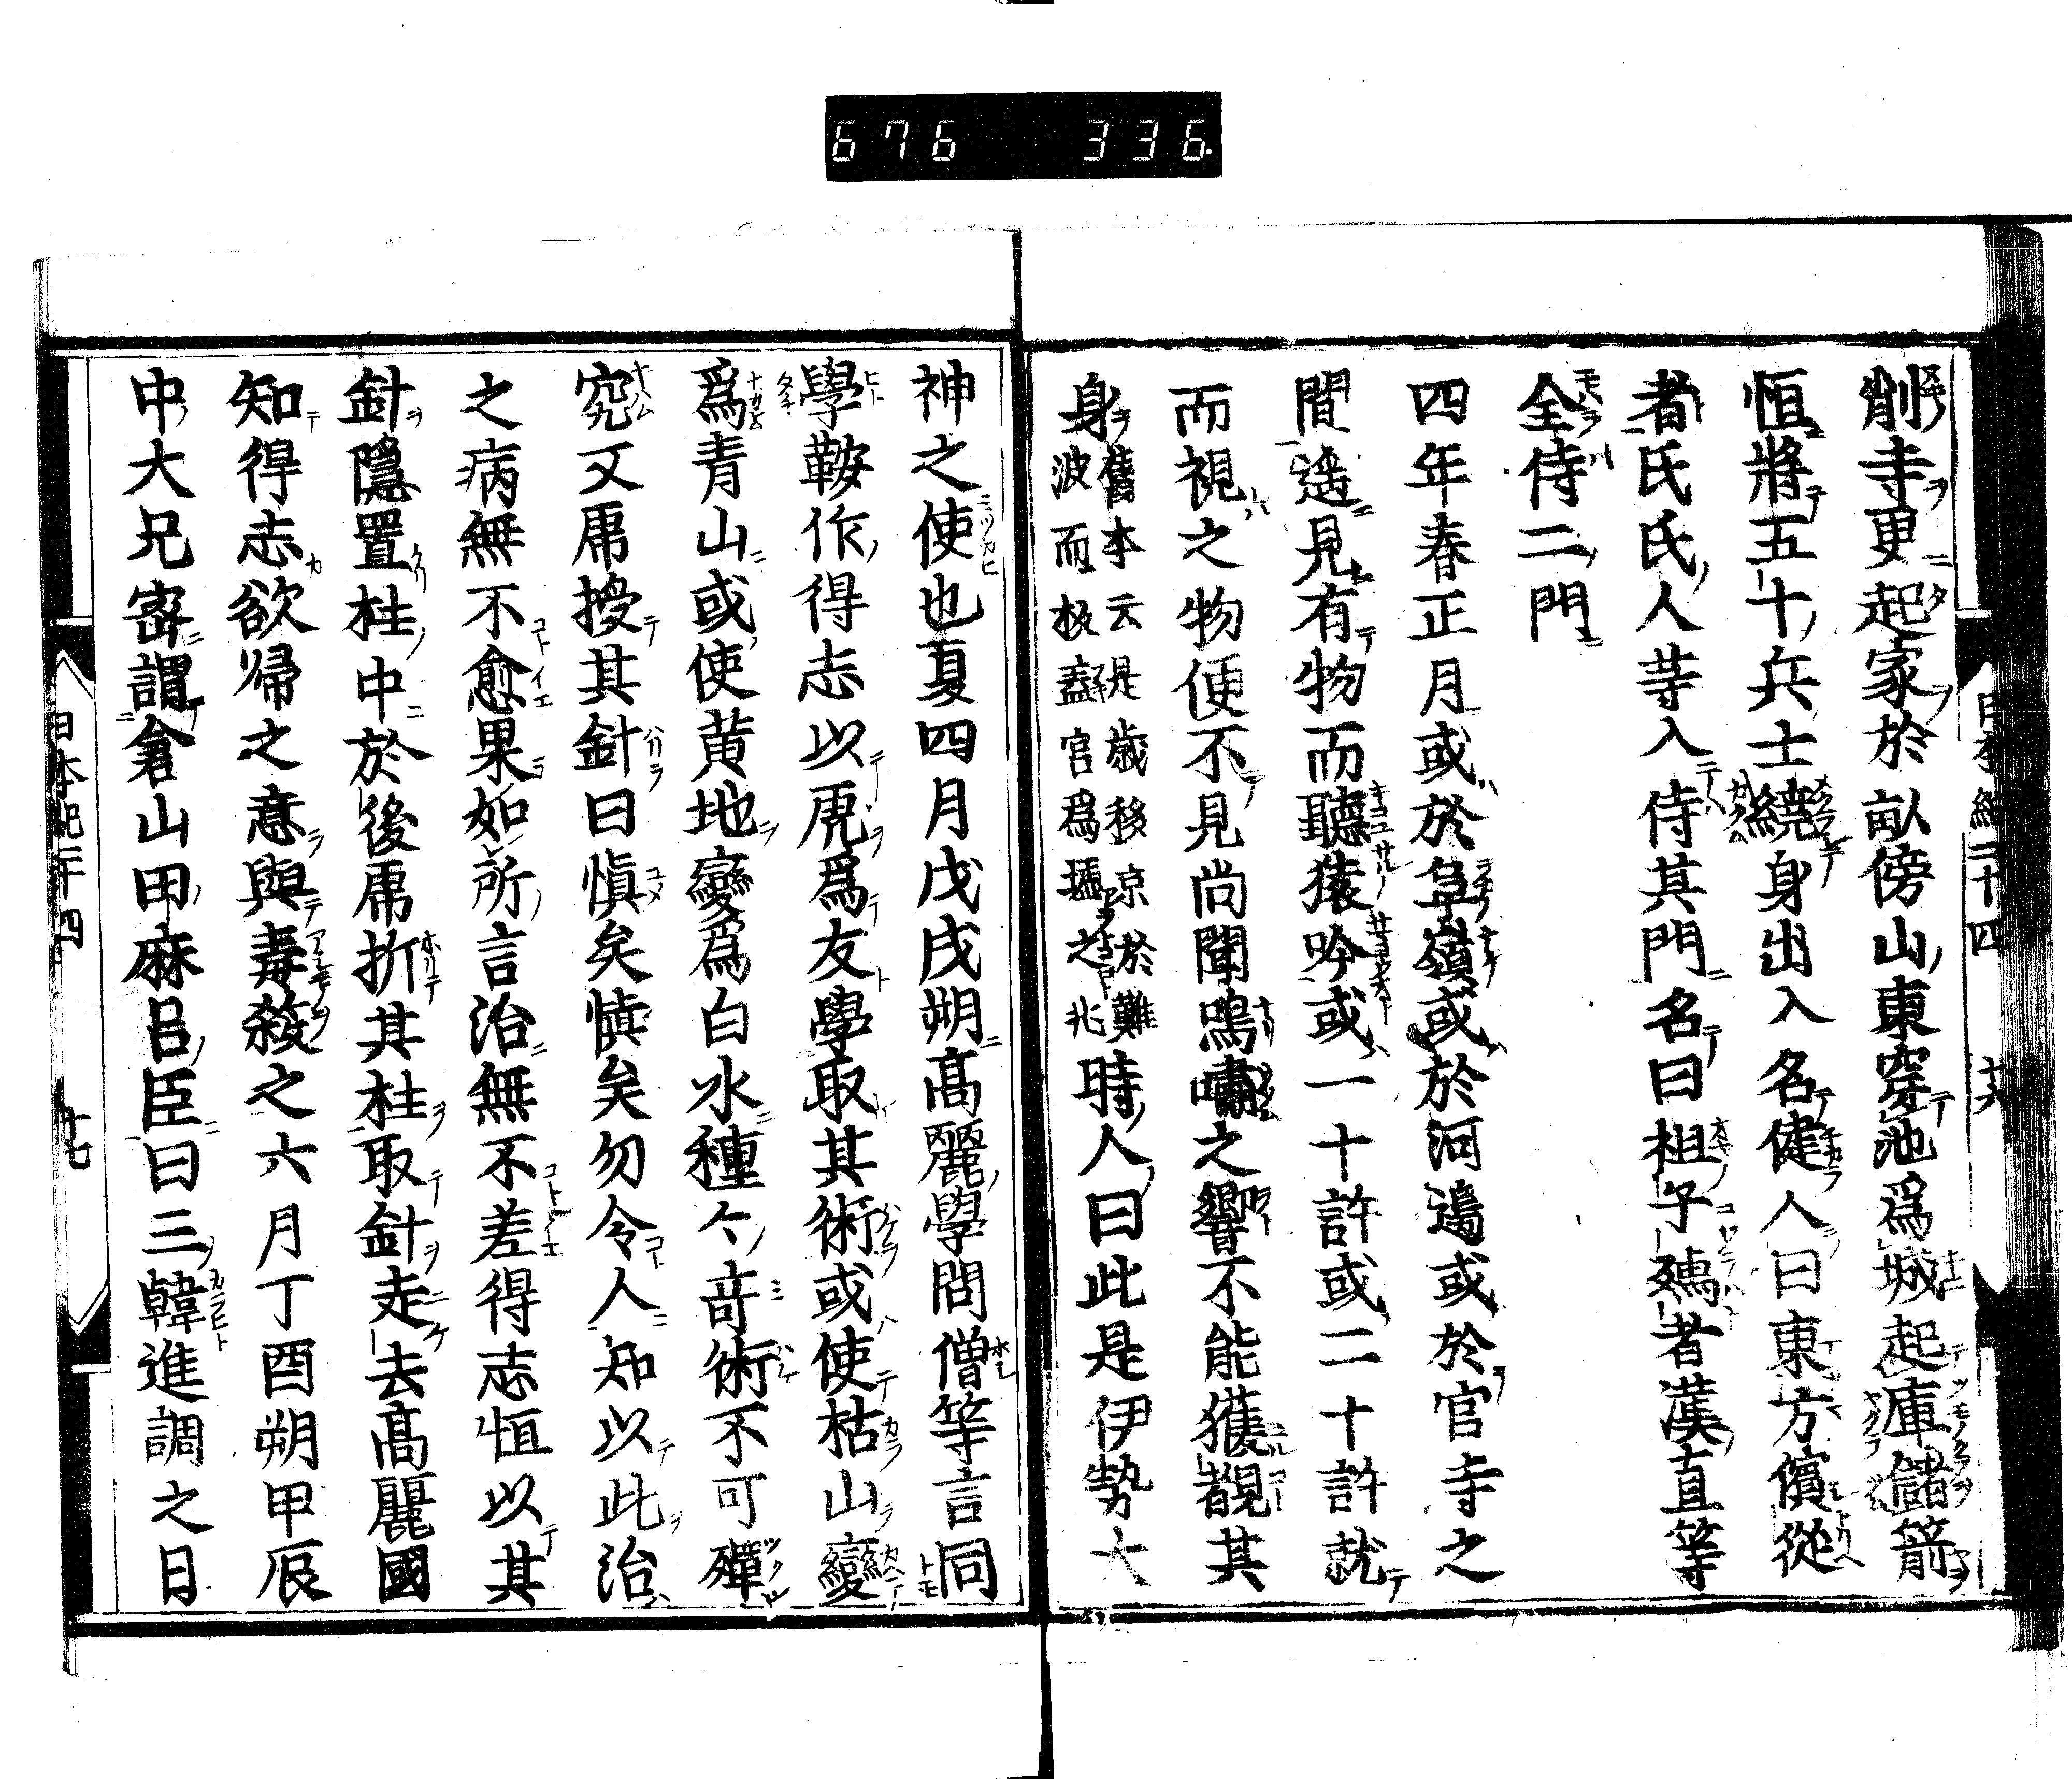 676 336
日本紀二十四 十六
削寺更起家於畝傍山東穿池爲城起庫儲箭
恒將五十兵士繞身出入名健人曰東方儐從
者氏氏人等入侍其門名曰祖子孺者漢直等
全侍二門
四年春正月或於阜嶺或於河邊或於宮寺之
間遥見有物而聽猿吟或一十許或二十許就
而視之物便不見尚聞鳴嘯之響不能獲覩其
身舊本云是歳移京於難波而板蓋宮爲墟之兆時人曰此是伊勢大
神之使也夏四月戊戌朔髙麗學問僧等言同
學鞍作得志以虎爲友學取其術或使枯山變
爲青山或使黄地變爲白水種々竒術不可殫
究又虎授其針曰愼矣愼矣勿令人知以此治
之病無不愈果如所言治無不差得志恒以其
針隱置柱中於後虎折其柱取針走去髙麗國
知得志欲歸之意與毒殺之六月丁酉朔甲辰
中大兄宻謂倉山田麻呂臣曰三韓進調之日
日本紀二十四 十七